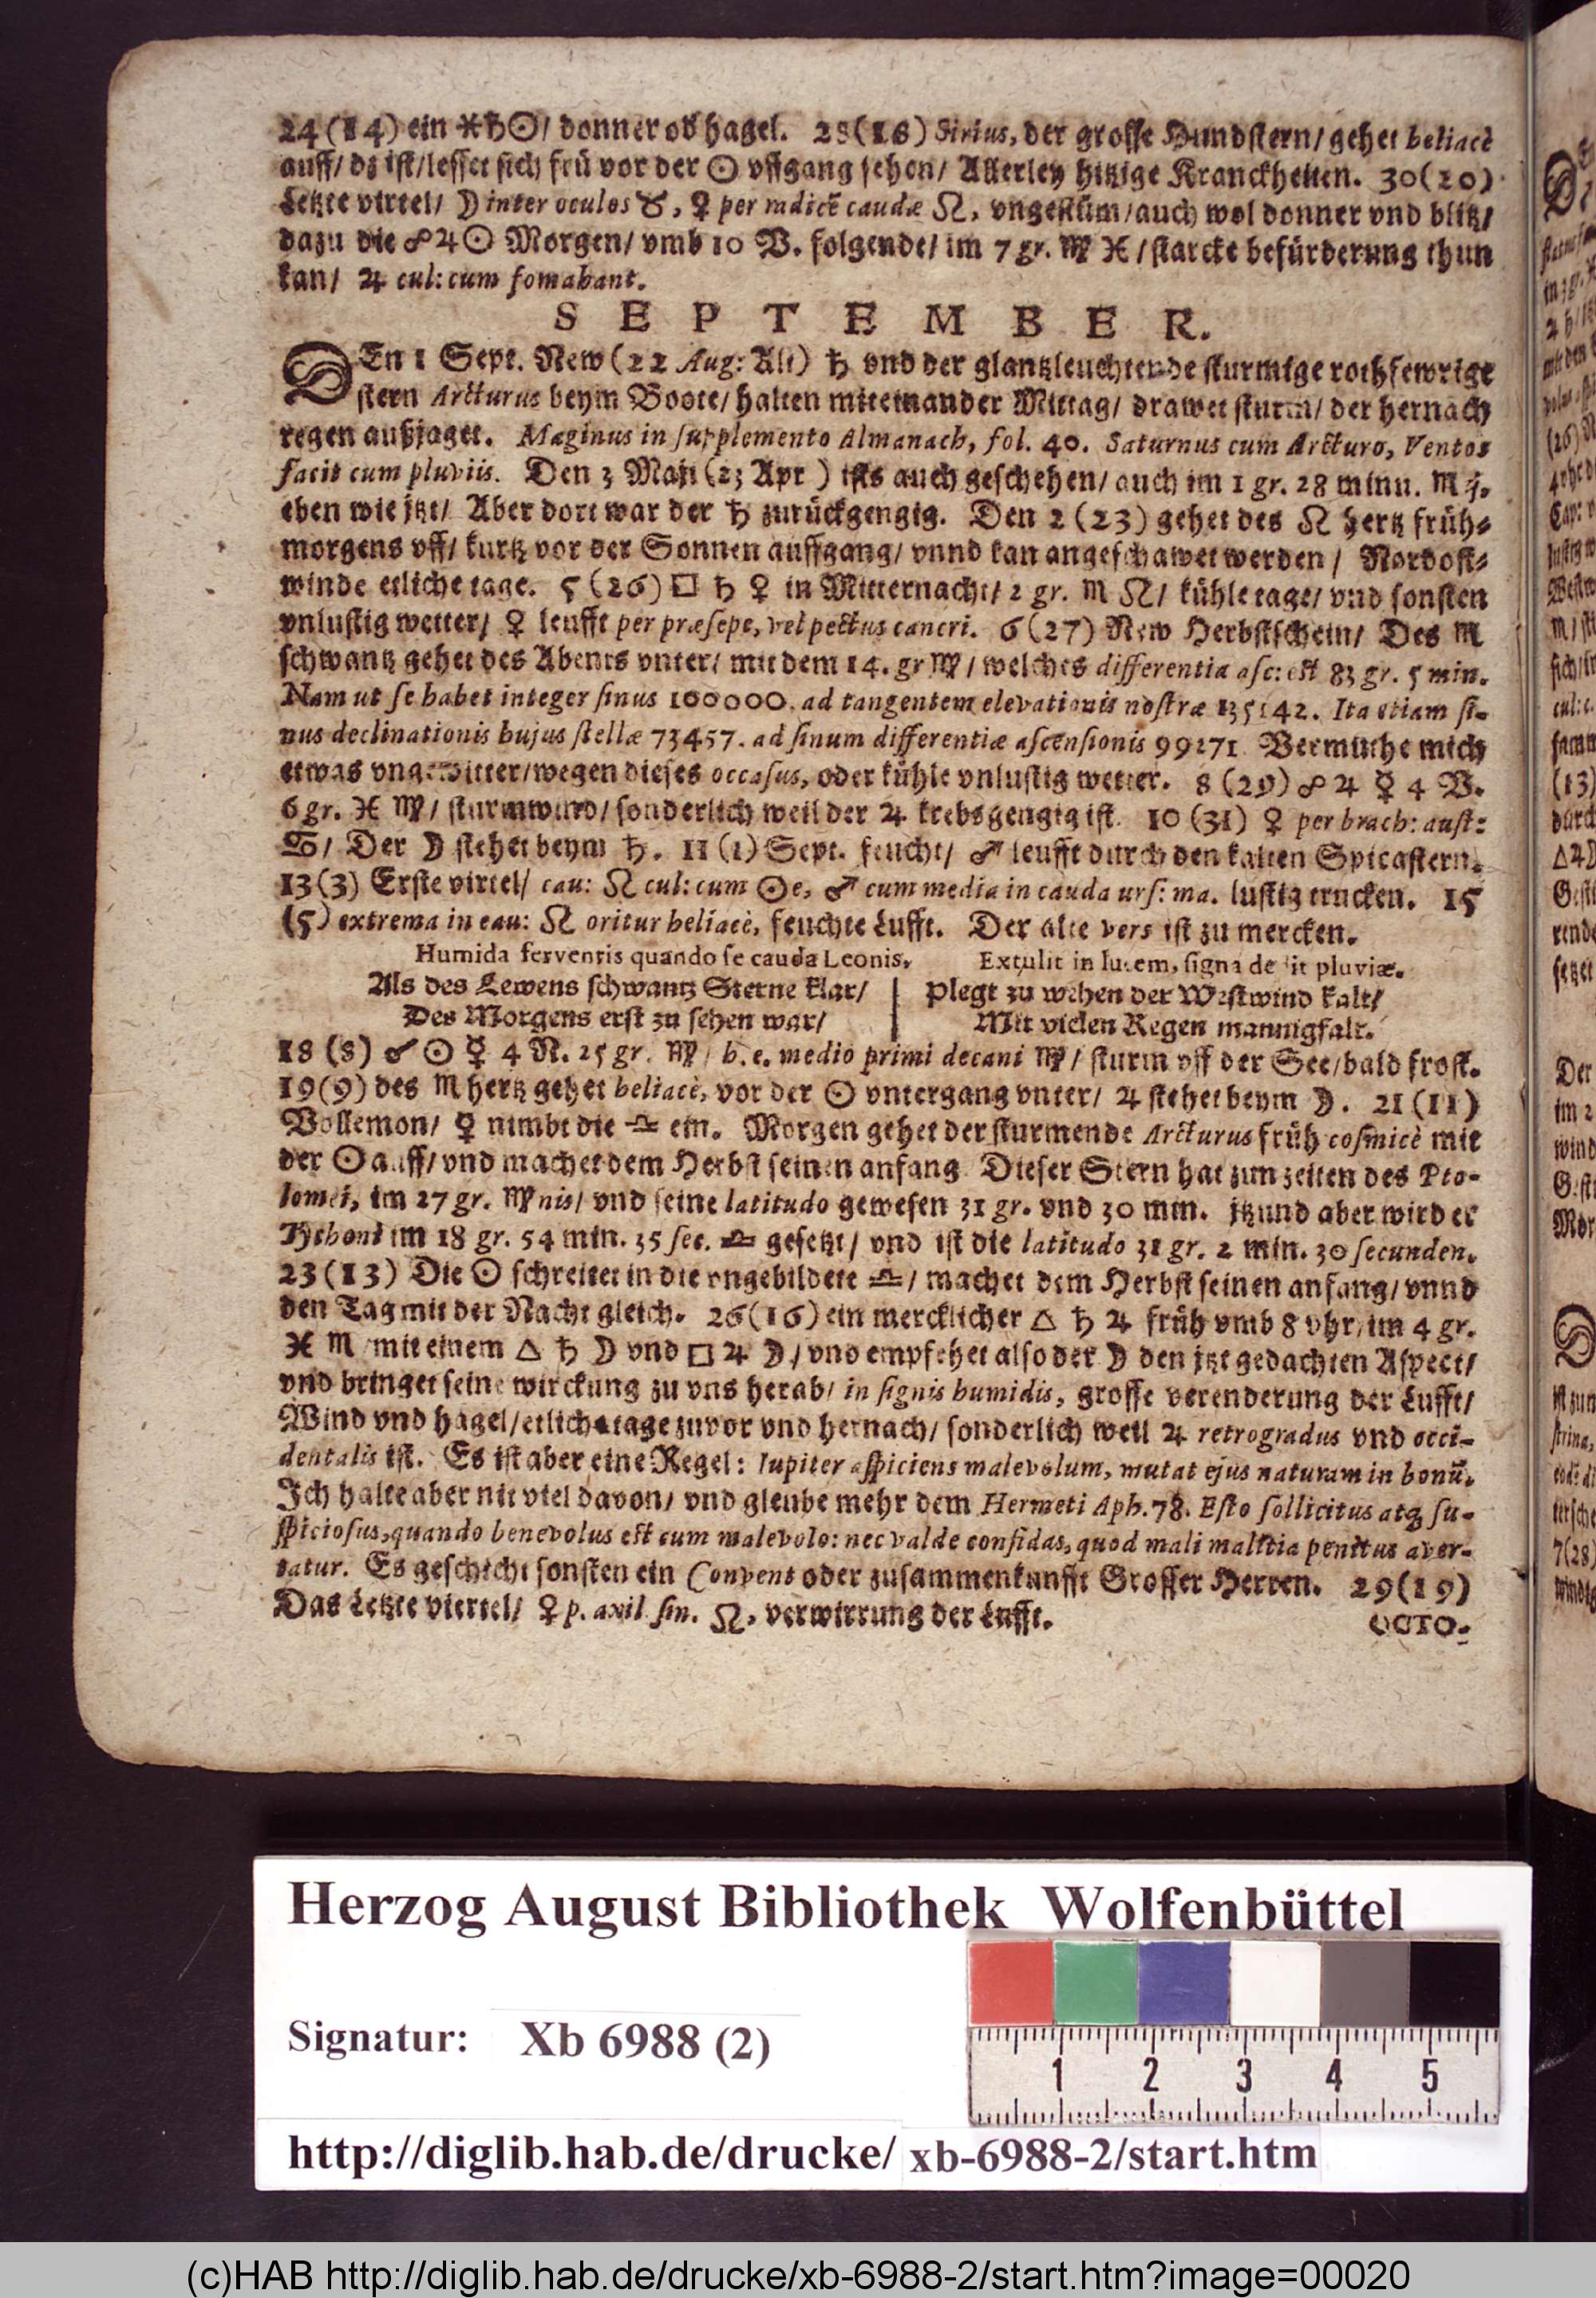 24(14) ein ⚹♄☉/ donner od hagel. 28(18) Sirius, der grosse Hundstern/ gehet heliacè
auff/ dz ist/ lesset sich frü vor der ☉ vffgang sehen/ Allerley hitzige Kranckheiten. 30(20)
Letzte virtel/ ☽ inter oculos ♉, ♀ per radicē caudæ ♌, vngestüm/ auch wol donner vnd blitz/
dazu die ☍♃☉ Morgen/ vmb 10 V. folgende/ im 7 gr. ♍ ♓/ starcke befürderung thun
kan/ ♃ cul: cum fomahant.
SEPTEMBER.
DEn 1 Sept. New (22 Aug: Alt) ♄ vnd der glantzleuchtende sturmige rothfewrige
stern Arcturus beym Boote/ halten miteinander Mittag/ drawet sturm/ der hernach
regen außjaget. Maginus in supplemento Almanach, fol. 40. Saturnus cum Arcturo, Ventos
facit cum pluviis. Den 3 Maji (23 Apr) ists auch geschehen/ auch im 1 gr. 28 minu. ♏
eben wie jtzt/ Aber dort war der ♄ zurückgengig. Den 2 (23) gehet des ♌ hertz früh⸗
morgens vff/ kurtz vor der Sonnen auffgang/ vnnd kan angeschawet werden/ Nordost⸗
winde etliche tage. 5 (26) □ ♄ ♀ in Mitternacht/ 2 gr. ♏ ♌/ kühle tage/ vnd sonsten
vnlustig wetter/ ♀ leufft per præsepe, vel pectus cancri. 6 (27) New Herbstschein/ Des ♏
schwantz gehet des Abents vnter/ mit dem 14. gr ♍/ welches differentia asc: est 83 gr. 5 min.
Nam ut se habet integer sinus 100000. ad tangentem elevationis nostræ 135142. Ita etiam si-
nus declinationis hujus stellæ 73457. ad sinum differentiæ ascensionis 99271 Vermuthe mich
etwas vngewitter/ wegen dieses occasus, oder kühle vnlustig wetter. 8 (29) ☍ ♃ ☿ 4 V.
6 gr. ♓ ♍/ sturmwind/ sonderlich weil der ♃ krebsgengig ist. 10 (31) ♀ per brach: aust:
♋/ Der ☽ stehet beym ♄. 11 (1) Sept. feucht/ ♂ leufft durch den kalten Spicastern.
13(3) Erste virtel/ cau: ♌ cul: cum ☉e, ♂ cum media in cauda urs: ma. lustig trucken. 15
(5) extrema in cau: ♌ oritur heliacè, feuchte Lufft. Der alte vers ist zu mercken.
Humida ferventis quando se cauda Leonis, Extulit in lucem, signa dedit pluviæ.
Als des Lewens schwantz Sterne klar/ | Plegt zu wehen der Westwind kalt/
Des Morgens erst zu sehen war/ | Mit vielen Regen mannigfalt.
18 (8) ☌ ☉ ☿ 4 N. 25 gr. ♍/ h. e. medio primi decani ♍/ sturm vff der See/ bald frost.
19(9) des ♏ hertz gehet heliacè, vor der ☉ vntergang vnter/ ♃ stehet beym ☽. 21 (11)
Vollemon/ ☿ nimbt die ♎ ein. Morgen gehet der sturmende Arcturus früh cosmicè mit
der ☉ auff/ vnd machet dem Herbst seinen anfang. Dieser Stern hat zun zeiten des Pto-
lomei, im 27 gr. ♍nis/ vnd seine latitudo gewesen 31 gr. vnd 30 min. jtzund aber wird er
Tychoni im 18 gr. 54 min. 35 sec. ♎ gesetzt/ vnd ist die latitudo 31 gr. 2 min. 30 secunden.
23 (13) Die ☉ schreitet in die vngebildete ♎/ machet dem Herbst seinen anfang/ vnnd
den Tag mit der Nacht gleich. 26(16) ein mercklicher △ ♄ ♃ früh vmb 8 vhr/ im 4 gr.
♓ ♏ mit einem △ ♄ ☽ vnd □ ♃ ☽/ vnd empfehet also der ☽ den jtzt gedachten Aspect/
vnd bringet seine wirckung zu vns herab/ in signis humidis, grosse verenderung der Lufft/
Wind vnd hagel/ etliche tage zuvor vnd hernach/ sonderlich weil ♃ retrogradus vnd occi-
dentalis ist. Es ist aber eine Regel: Iupiter aspiciens malevolum, mutat ejus naturam in bonū.
Ich halte aber nit viel davon/ vnd gleube mehr dem Hermeti Aph. 78. Esto sollicitus atq; su-
spiciosus, quando benevolus est cum malevolo: nec valde confidas, quod mali malitia penitus aver-
tatur. Es geschicht sonsten ein Convent oder zusammenkunfft Grosser Herren. 29 (19)
Das Letzte viertel/ ♀ p. axil. sin. ♌, verwirrung der Lufft.
OCTO-
Herzog August Bibliothek Wolfenbüttel
Signatur: Xb 6988 (2)
1 2 3 4 5
http://diglib.hab.de/drucke/ xb-6988-2/start.htm
(c)HAB http://diglib.hab.de/drucke/xb-6988-2/start.htm?image=00020